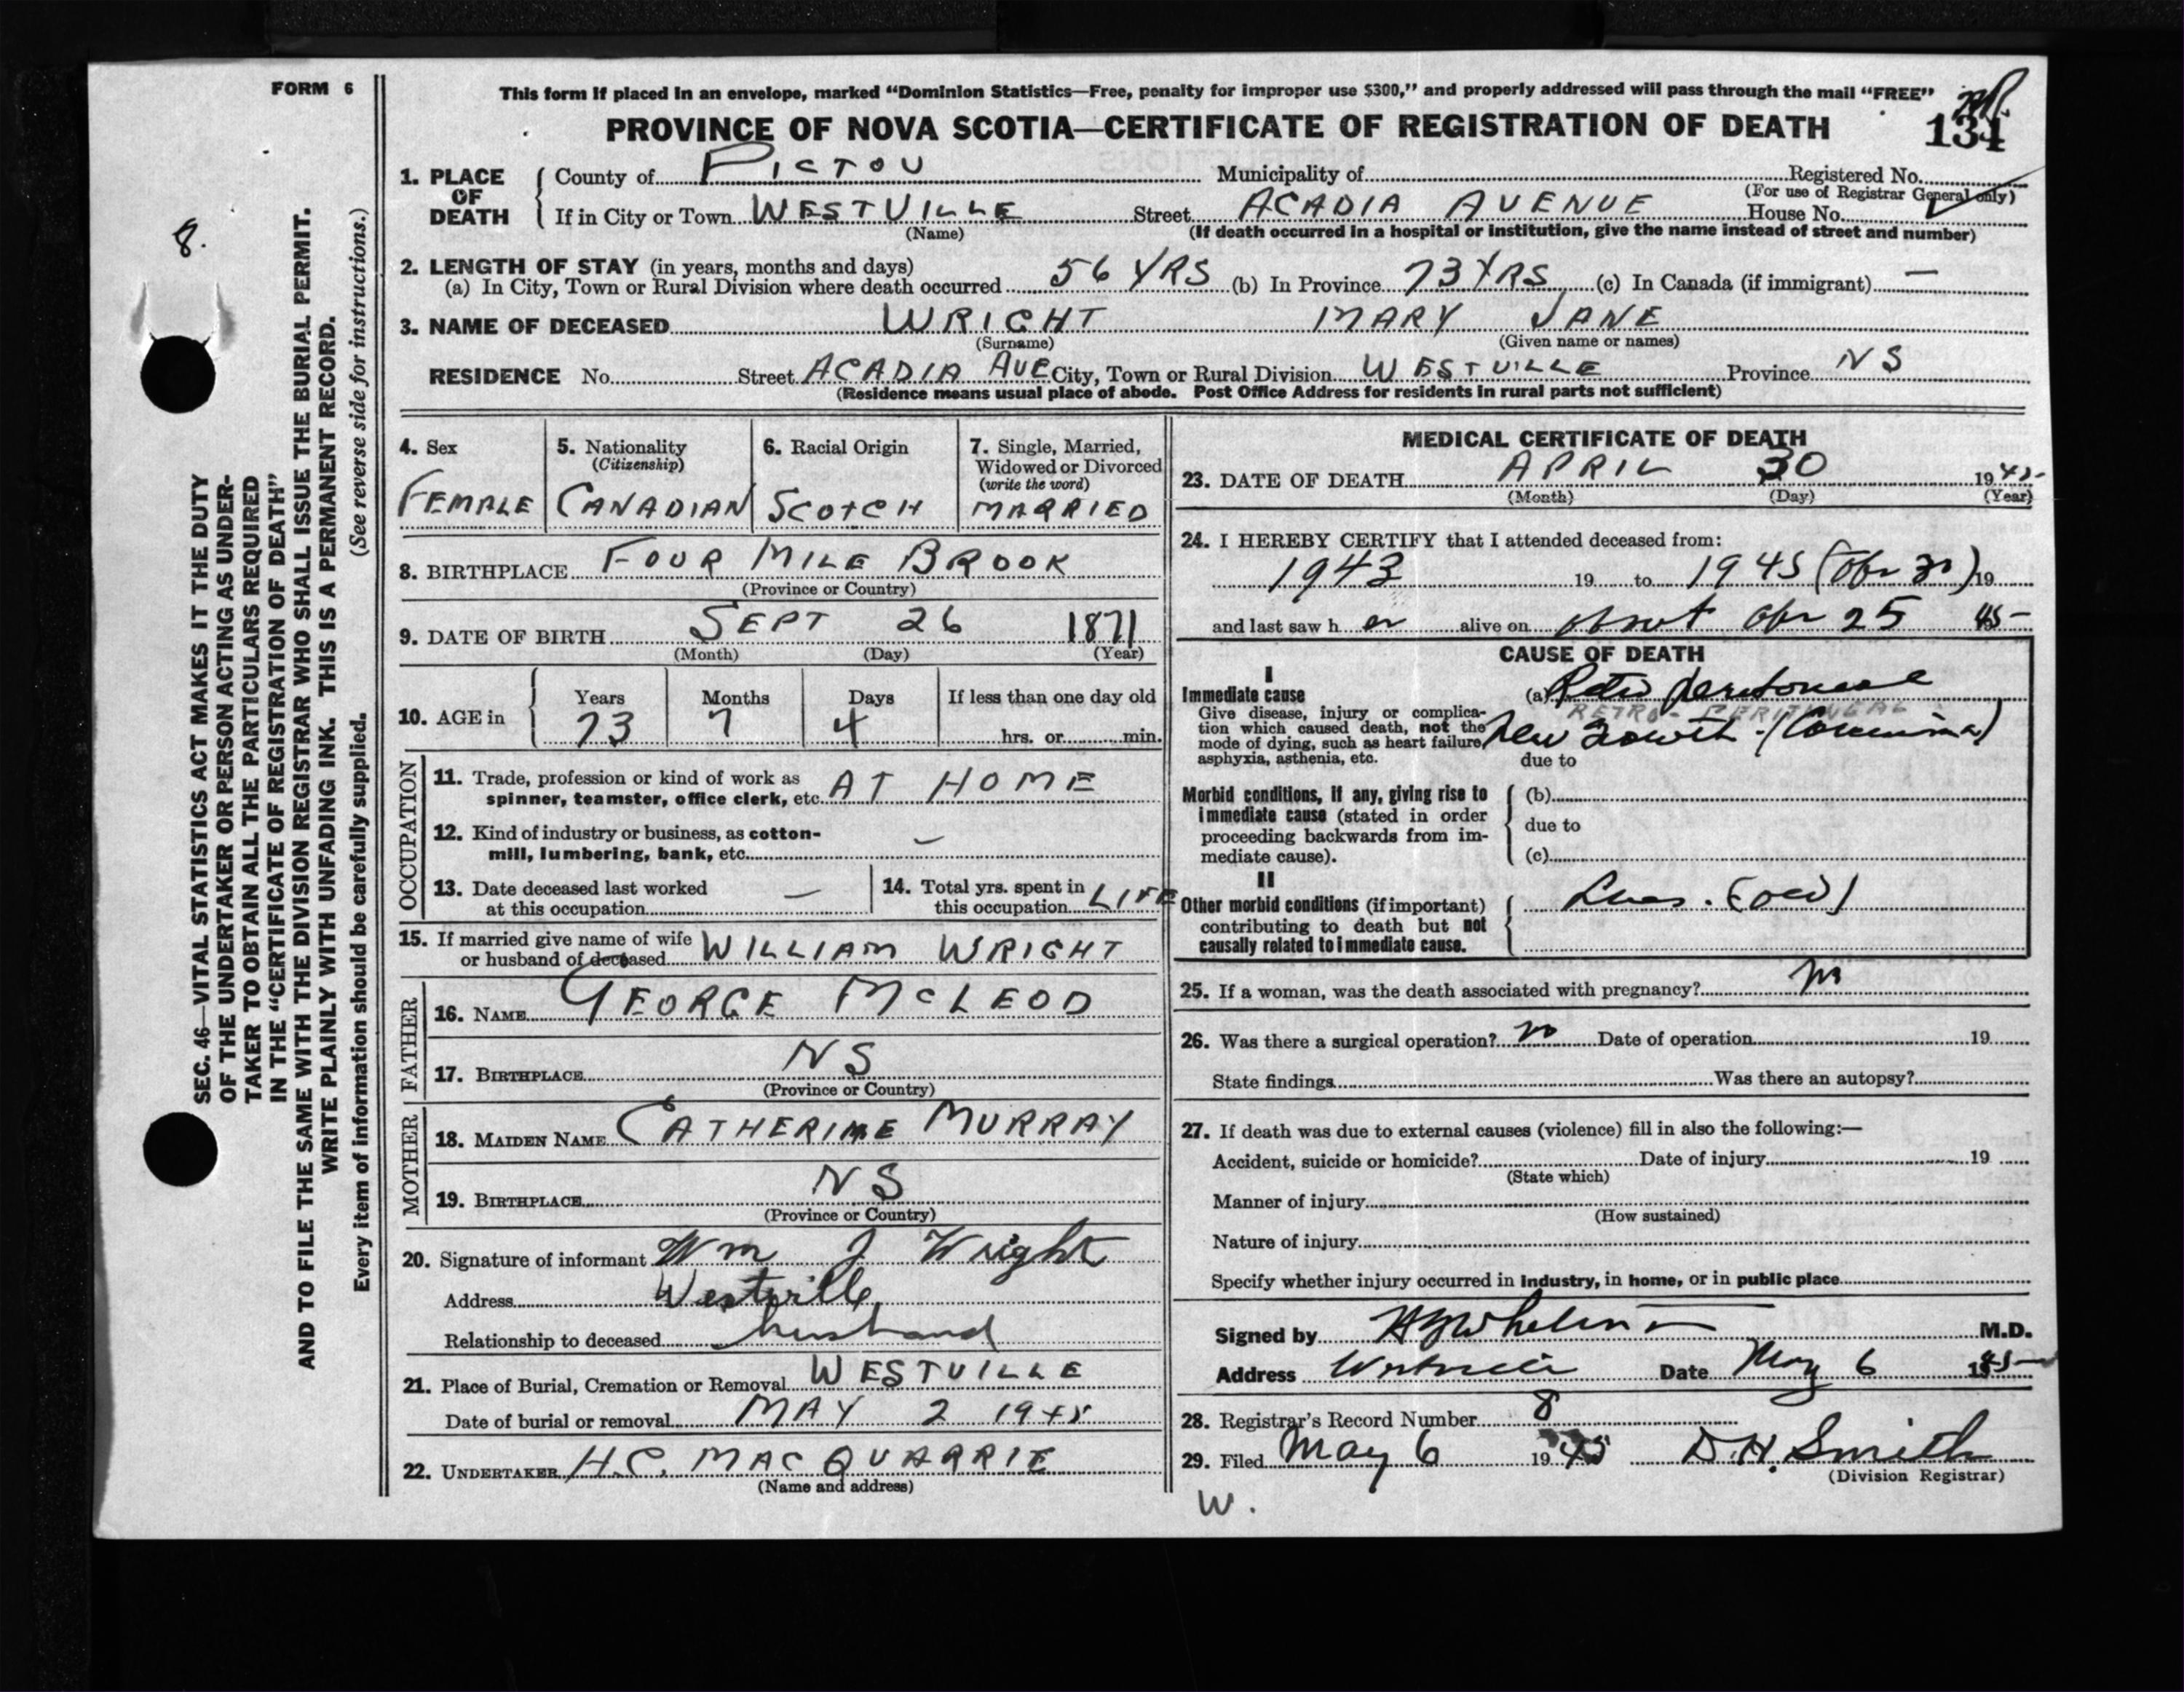 FORM 6
This form if placed in an envelope, marked “Dominion Statistics—Free, penalty for improper use $300,” and properly addressed will pass through the mail “FREE”
PROVINCE OF NOVA SCOTIA—CERTIFICATE OF REGISTRATION OF DEATH
134
1. PLACE OF DEATH
County of PICTOU Municipality of Registered No.
(For use of Registrar General only)
If in City or Town WESTVILLE Street ACADIA AVENUE House No.
(Name) (If death occurred in a hospital or institution, give the name instead of street and number)
2. LENGTH OF STAY (in years, months and days)
(a) In City, Town or Rural Division where death occurred 56 YRS (b) In Province 73 YRS (c) In Canada (if immigrant) —
3. NAME OF DECEASED WRIGHT MARY JANE
(Surname) (Given name or names)
RESIDENCE No. Street ACADIA AVE City, Town or Rural Division WESTVILLE Province NS
(Residence means usual place of abode. Post Office Address for residents in rural parts not sufficient)
4. Sex
FEMALE
5. Nationality
(Citizenship)
CANADIAN
6. Racial Origin
SCOTCH
7. Single, Married,
Widowed or Divorced
(write the word)
MARRIED
8. BIRTHPLACE FOUR MILE BROOK
(Province or Country)
9. DATE OF BIRTH SEPT 26 1871
(Month) (Day) (Year)
10. AGE in
Years Months Days If less than one day old
73 7 4 hrs. or min.
OCCUPATION
11. Trade, profession or kind of work as
spinner, teamster, office clerk, etc. AT HOME
12. Kind of industry or business, as cotton-
mill, lumbering, bank, etc. —
13. Date deceased last worked
at this occupation —
14. Total yrs. spent in
this occupation LIFE
15. If married give name of wife
or husband of deceased WILLIAM WRIGHT
FATHER
16. NAME GEORGE MCLEOD
17. BIRTHPLACE NS
(Province or Country)
MOTHER
18. MAIDEN NAME CATHERINE MURRAY
19. BIRTHPLACE NS
(Province or Country)
20. Signature of informant Wm J Wright
Address Westville
Relationship to deceased husband
21. Place of Burial, Cremation or Removal WESTVILLE
Date of burial or removal MAY 2 1945
22. UNDERTAKER H.C. MACQUARRIE
(Name and address)
MEDICAL CERTIFICATE OF DEATH
23. DATE OF DEATH APRIL 30 1945
(Month) (Day) (Year)
24. I HEREBY CERTIFY that I attended deceased from:
1943 19 to 1945 (Apr 30) 19
and last saw her alive on about Apr 25 45
CAUSE OF DEATH
I
Immediate cause
Give disease, injury or complica-
tion which caused death, not the
mode of dying, such as heart failure,
asphyxia, asthenia, etc.
(a) Retro peritoneal
RETRO-PERITONEAL
New Growth - (Carcinoma)
due to
Morbid conditions, if any, giving rise to
immediate cause (stated in order
proceeding backwards from im-
mediate cause).
(b)
due to
(c)
II
Other morbid conditions (if important)
contributing to death but not
causally related to immediate cause.
Lues. (old)
25. If a woman, was the death associated with pregnancy? no
26. Was there a surgical operation? no Date of operation 19
State findings Was there an autopsy?
27. If death was due to external causes (violence) fill in also the following:—
Accident, suicide or homicide? Date of injury 19
(State which)
Manner of injury
(How sustained)
Nature of injury
Specify whether injury occurred in industry, in home, or in public place
Signed by M.D.
Address Westville Date May 6 1945
28. Registrar's Record Number 8
29. Filed May 6 1945 D.H. Smith
(Division Registrar)
W.
8.
SEC. 46—VITAL STATISTICS ACT MAKES IT THE DUTY
OF THE UNDERTAKER OR PERSON ACTING AS UNDER-
TAKER TO OBTAIN ALL THE PARTICULARS REQUIRED
IN THE “CERTIFICATE OF REGISTRATION OF DEATH”
AND TO FILE THE SAME WITH THE DIVISION REGISTRAR WHO SHALL ISSUE THE BURIAL PERMIT.
WRITE PLAINLY WITH UNFADING INK. THIS IS A PERMANENT RECORD.
Every item of information should be carefully supplied. (See reverse side for instructions.)